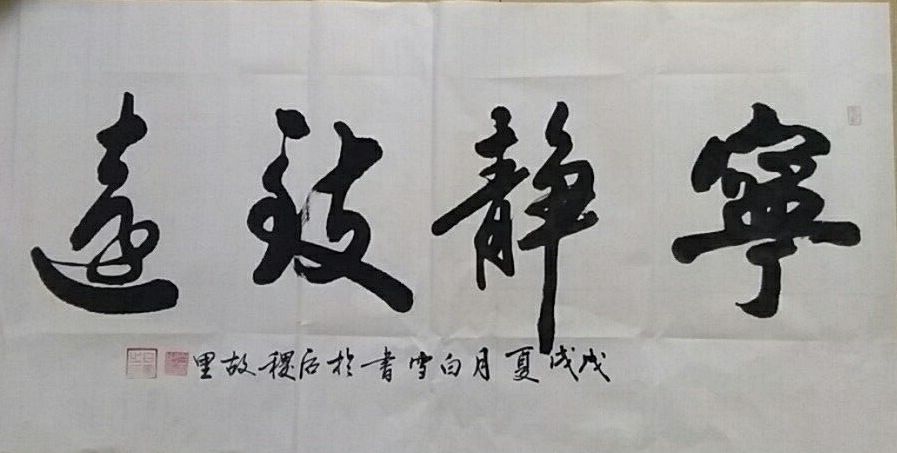 寧靜致遠
戊戌夏月白雪書於后稷故里